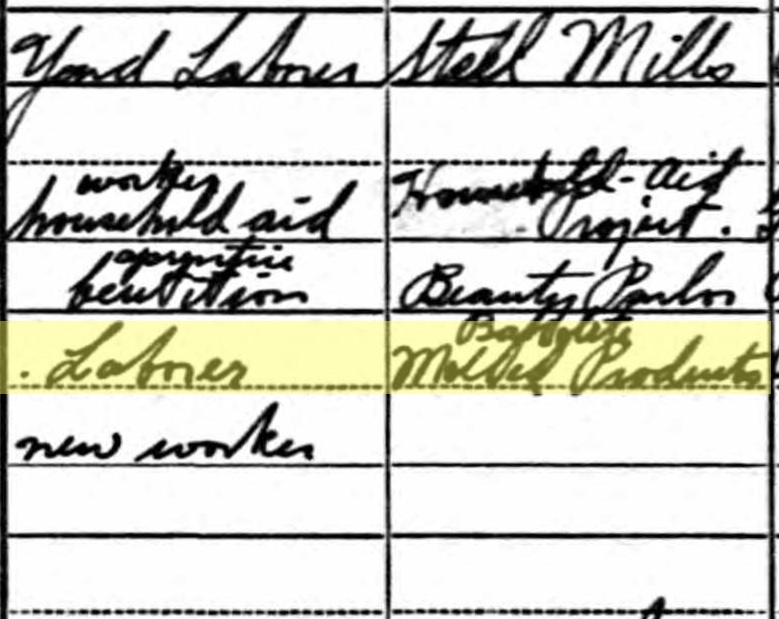 Yard Laborer Steel Mills
worker
household aid Household-Aid
Project.
apprentice
beutition Beauty Parlor
Bakelite
. Laborer Molded Products
new worker